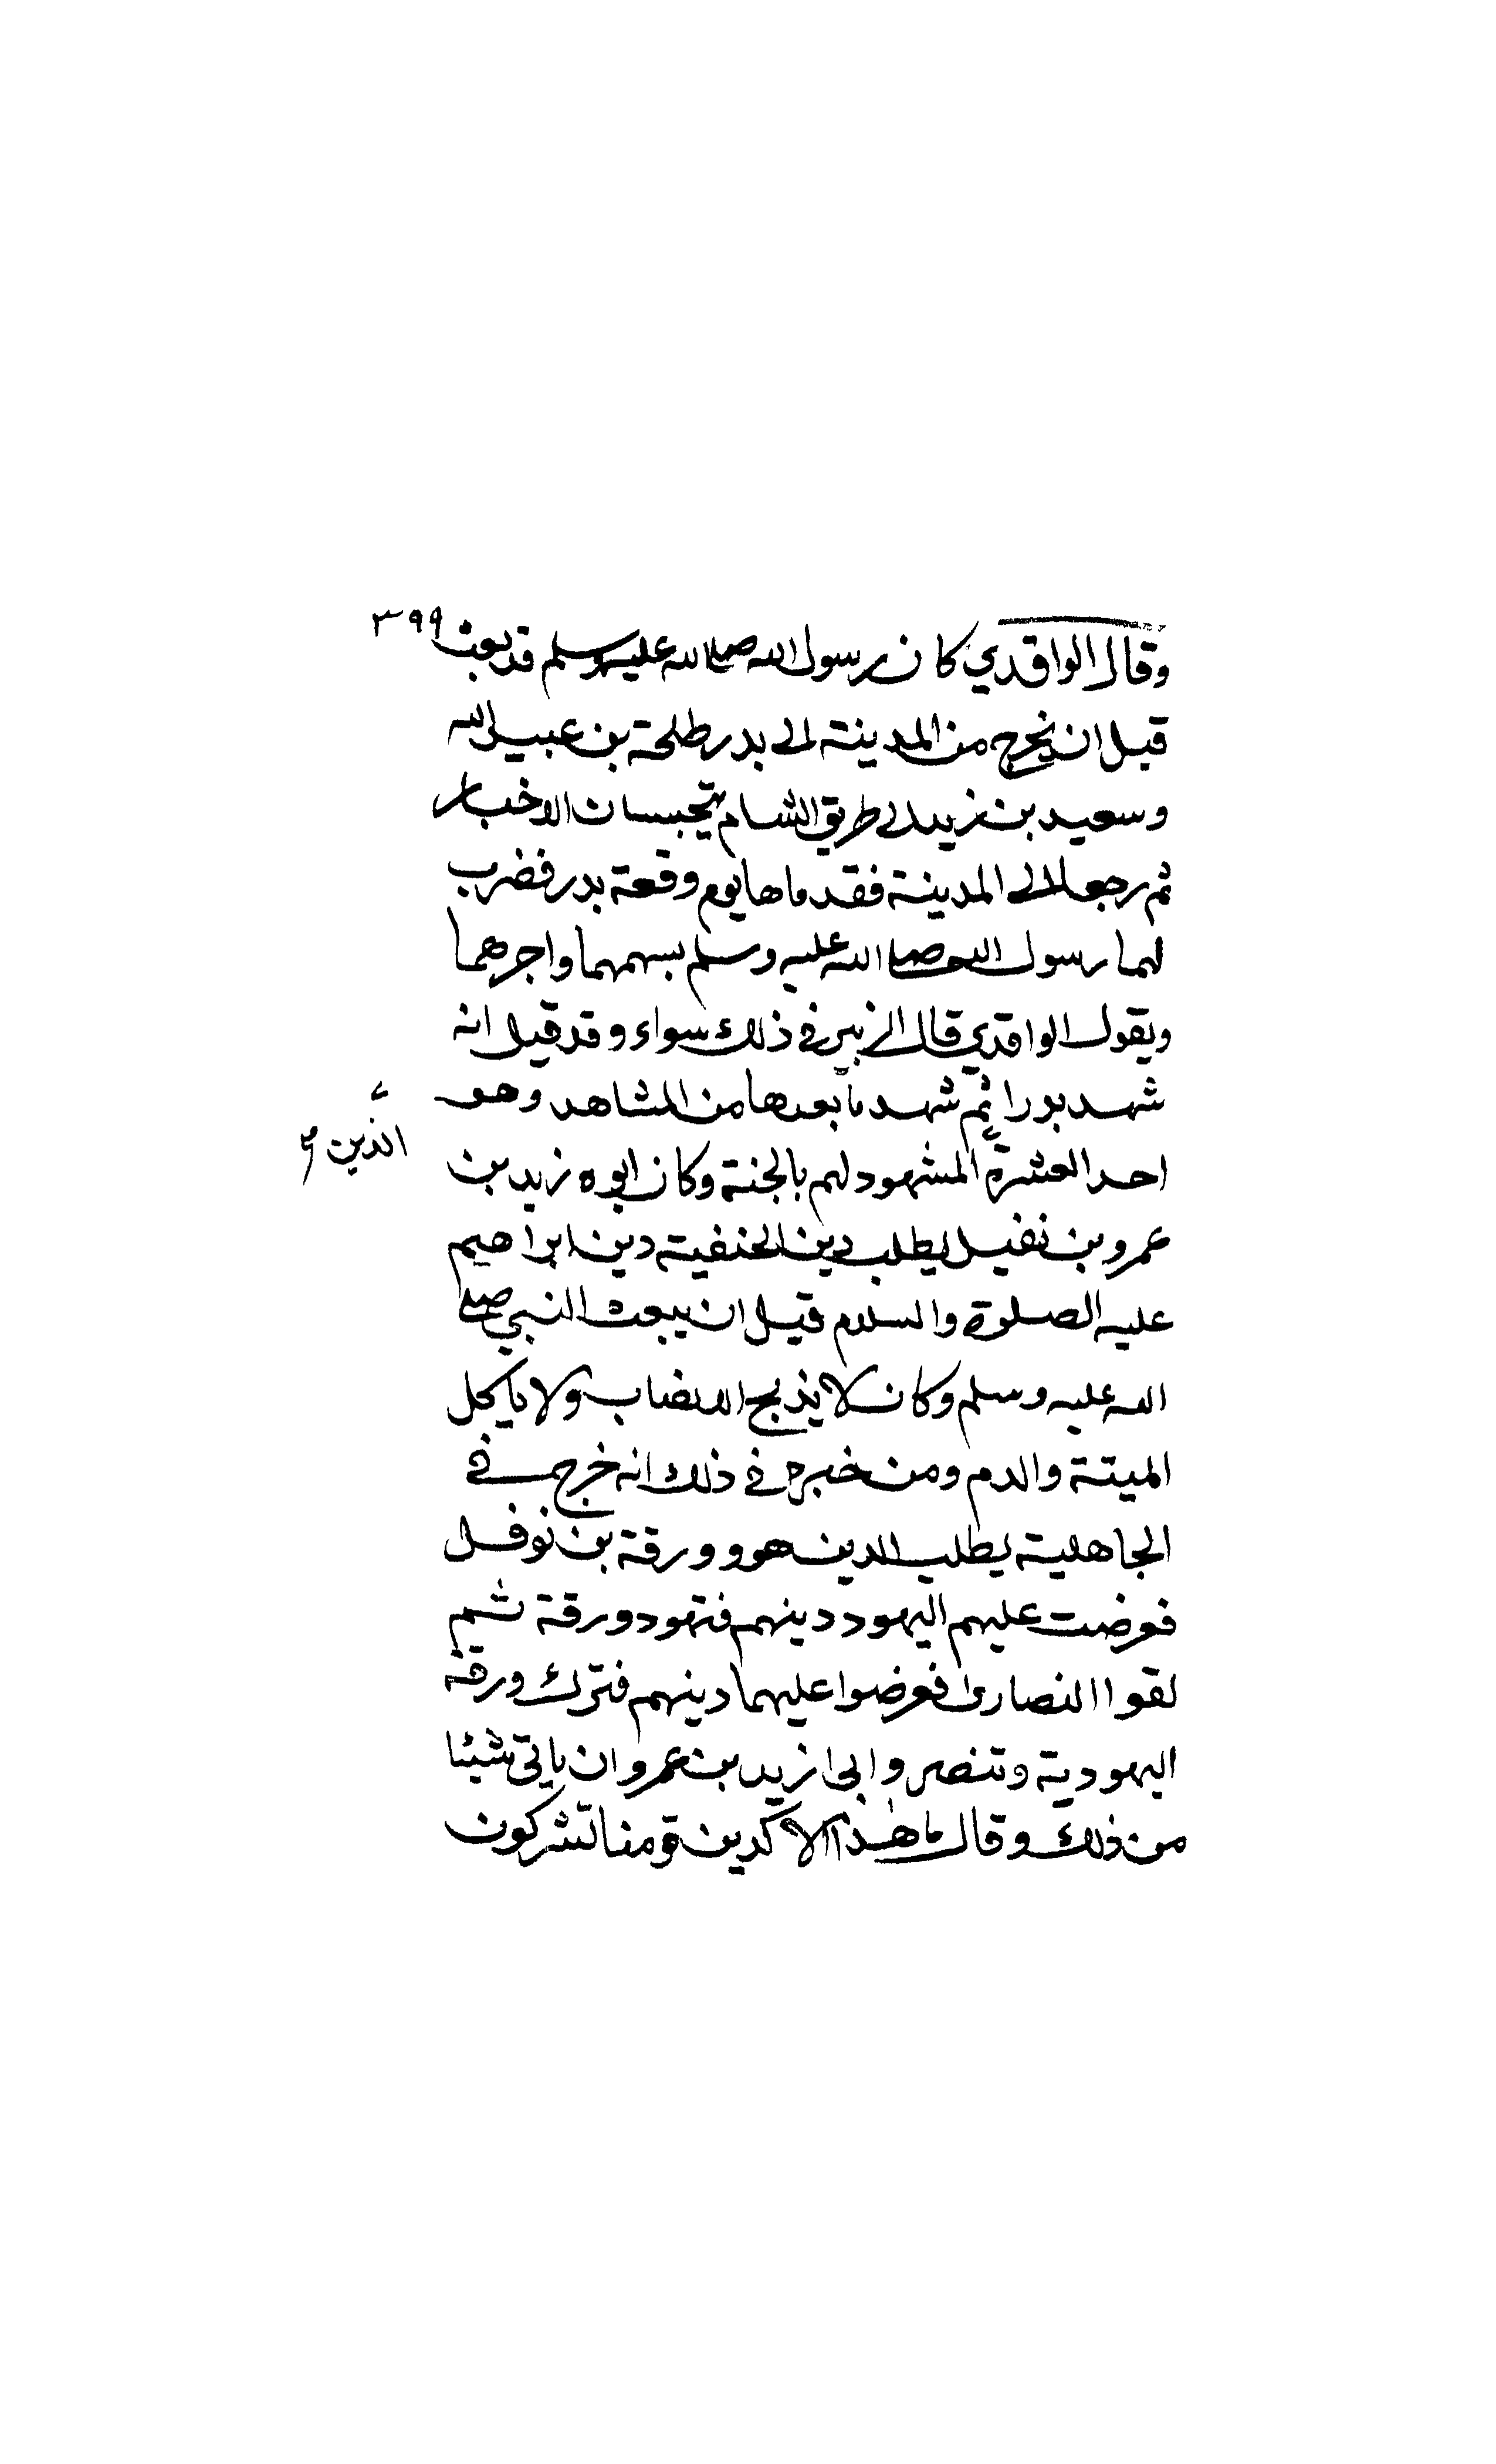 ٣٩٩
وقال الواقدي كان رسول الله صلى الله عليه وسلم قد بعث
قبل ان يخرج من المدينة الى بدر طلحة بن عبيد الله
وسعيد بن زيد الى طريق الشام يتجسسان الاخبار
ثم رجعا الى المدينة فقدماها يوم وقعة بدر فضرب
لهما رسول الله صلى الله عليه وسلم بسهمهما واجرهما
ويقول الواقدي قال الزبير في ذلك سواء وقد قيل انه
شهد بدرا ثم شهد ما بعدها من المشاهد وهو
احد العشرة المشهود لهم بالجنة وكان ابوه زيد بن
الذين
عمرو بن نفيل يطلب دين الحنفية دين ابراهيم
عليه الصلوة والسلام قبل ان يبعث النبي صلى
الله عليه وسلم وكان لا يذبح الانصاب ولا ياكل
الميتة والدم ومن خبره في ذلك انه خرج في
الجاهلية يطلب الدين هو وورقة بن نوفل
فعرضت عليهم اليهود دينهم فتهود ورقة ثم
لقوا النصارى فعرضوا عليهما دينهم فترك ورقة
اليهودية وتنصر وابى زيد بن عمرو ان ياتي شيئا
من ذلك وقال ما هذا الا كدين قومنا تشركون